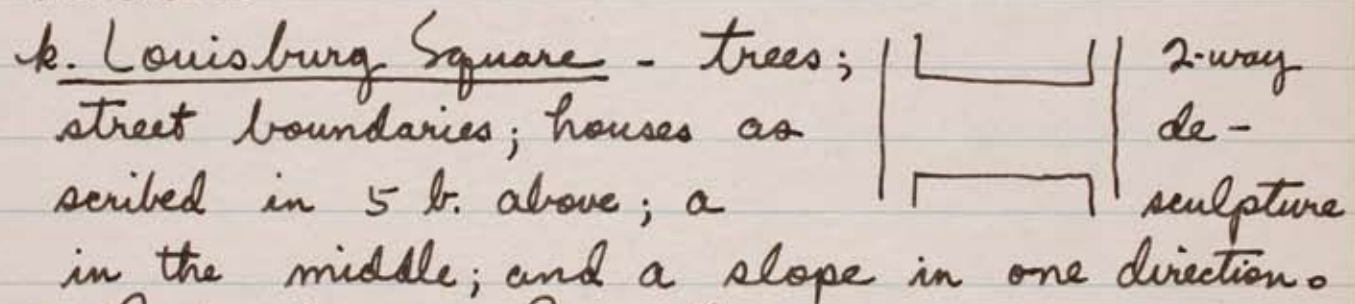 k. Louisburg Square - trees; 2-way
street boundaries; houses as de-
scribed in 5 b. above; a sculpture
in the middle; and a slope in one direction.